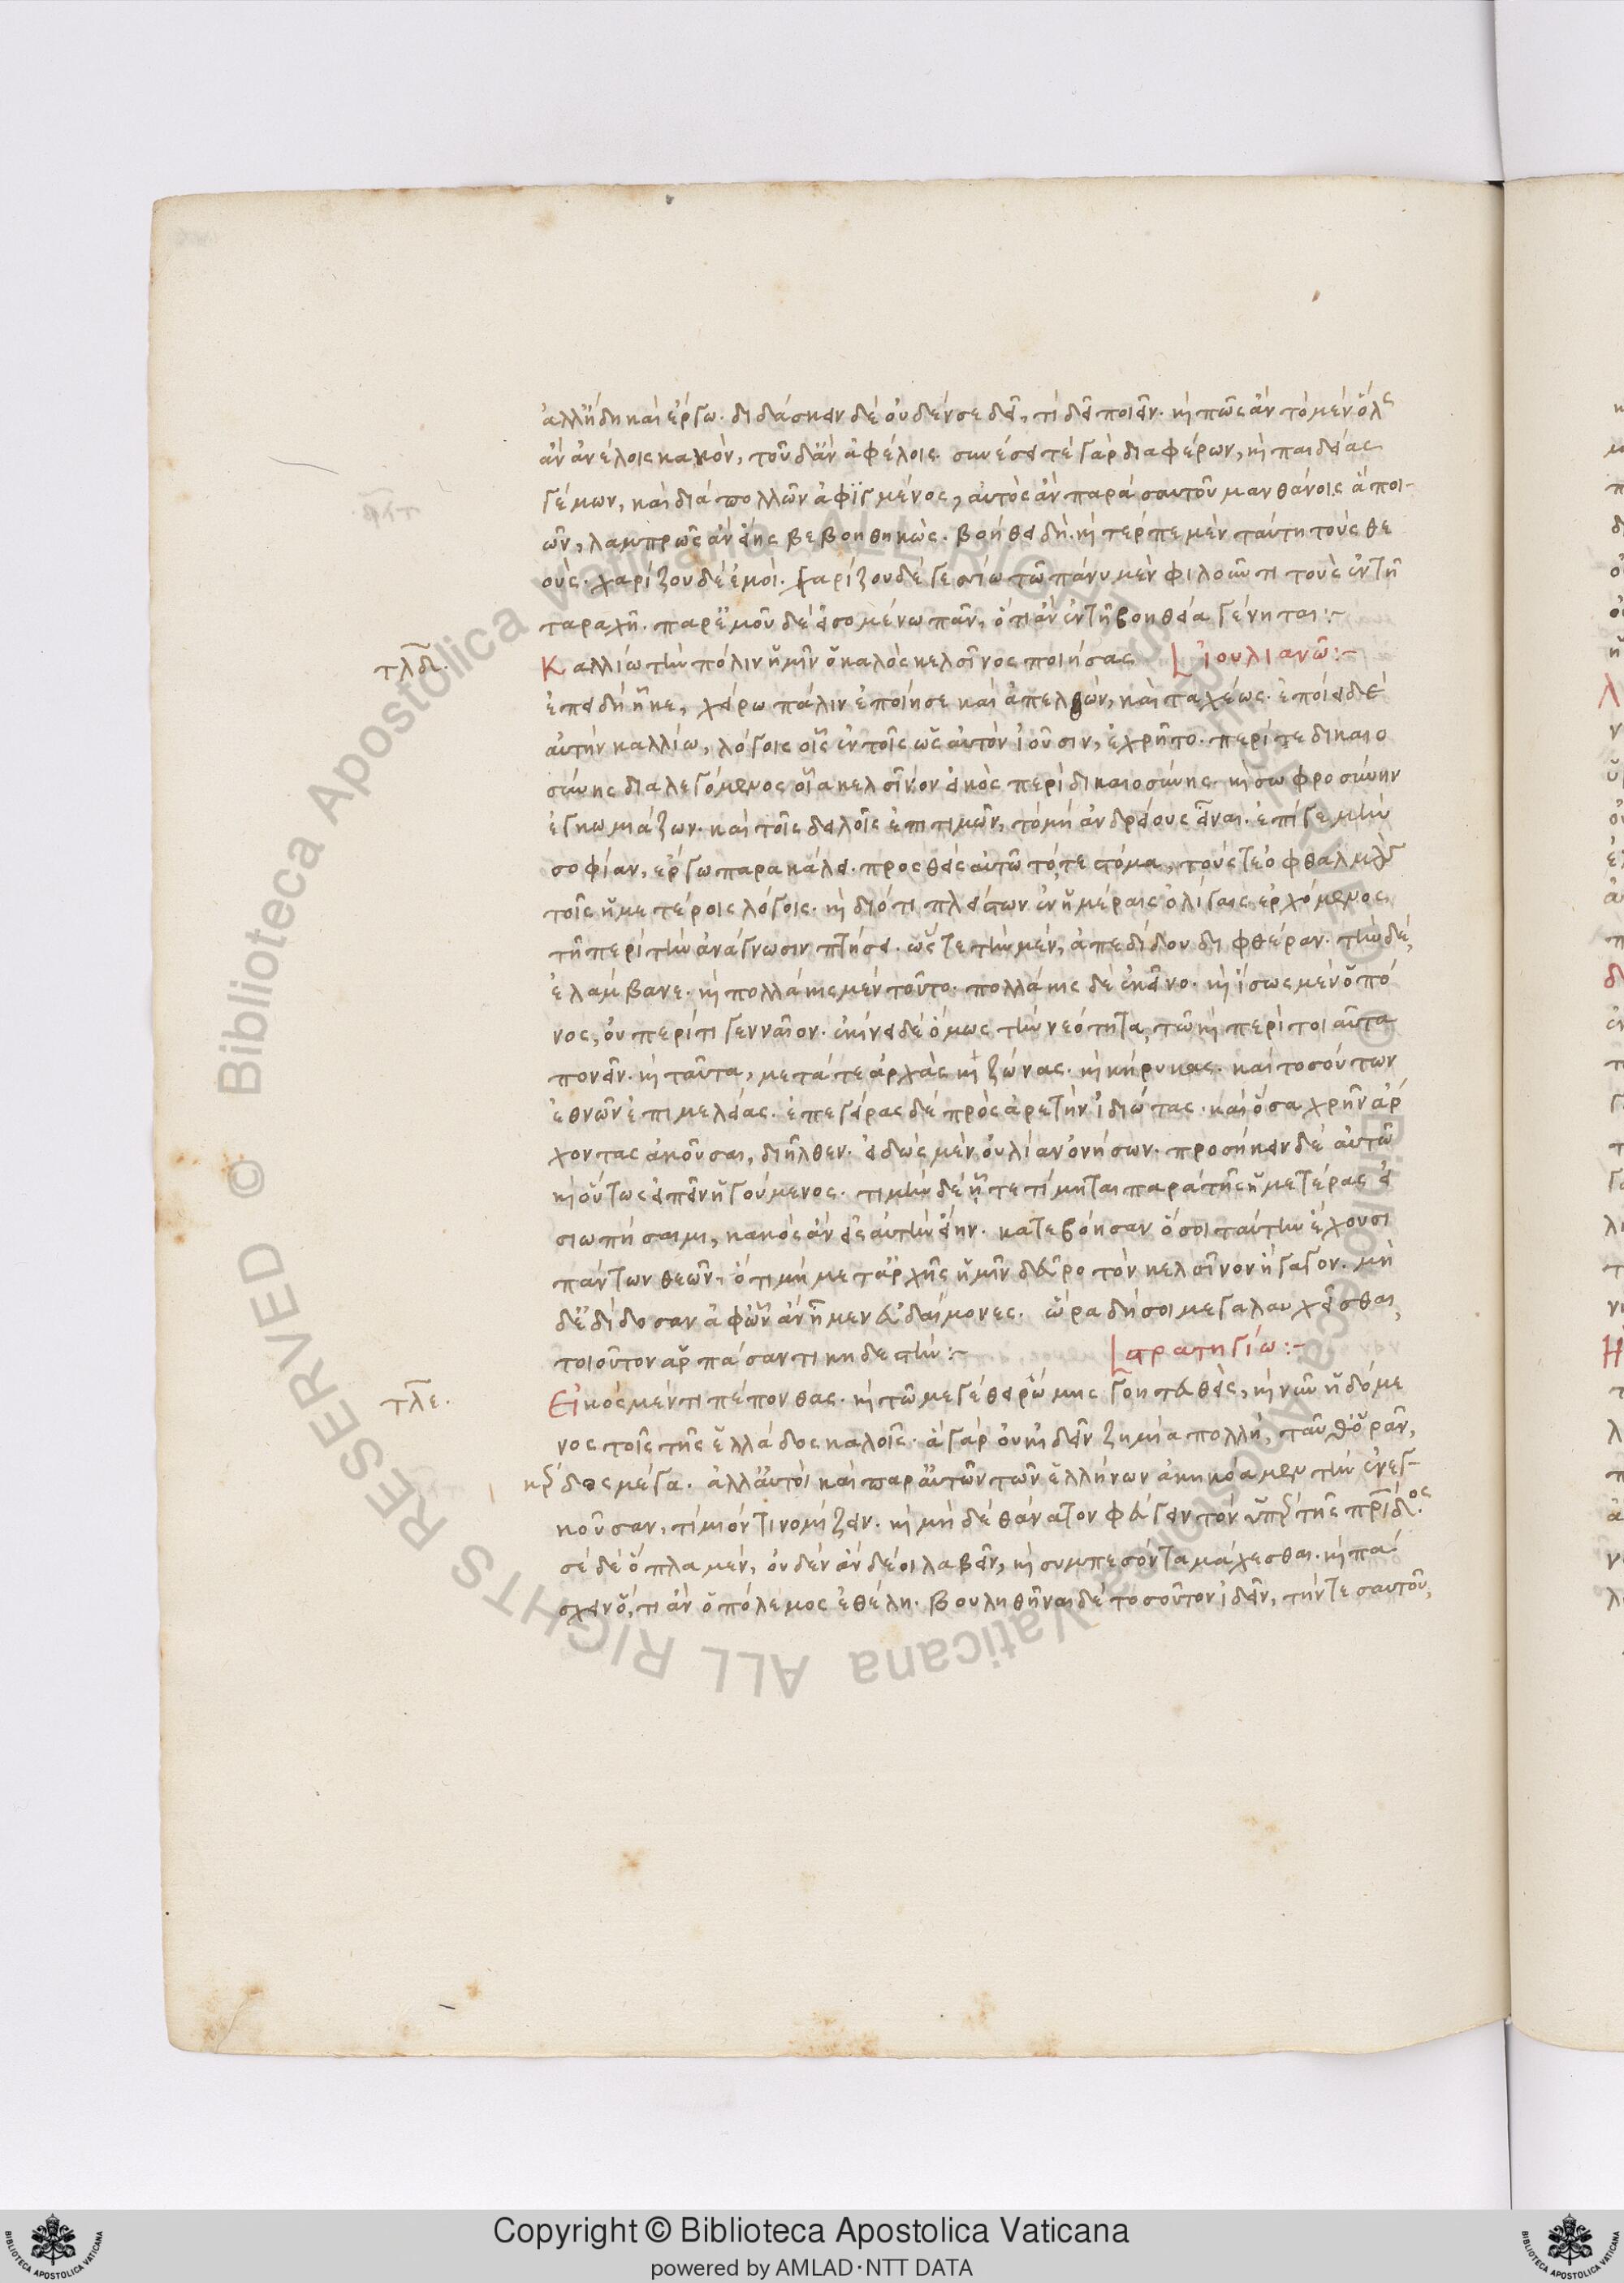 ἀλλ' ἤδη καὶ ἔργω. διδάσκειν δέ οὐδέν σε δεῖ, τί δεῖ ποιεῖν. καὶ πῶς ἂν τὸ μὲν ὅλως
ἂν ἀνέλοις κακόν, τοῦ δ' ἂν ἀφέλοις. συνέσει τὲ γὰρ διαφέρων, καὶ παιδείας
γέμων, καὶ διὰ πολλῶν ἀφιγμένος, αὐτὸς ἂν παρὰ σαυτοῦ μανθάνοις ἃ ποι-
ῶν, λαμπρῶς ἂν εἴης βεβοηθηκώς. βοήθει δή. καὶ τέρπε μὲν ταύτη τοὺς θε
οὺς. χαρίζου δέ ἐμοί. χαρίζου δέ γε τῶ πάνυ μὲν φιλοῦντι τοὺς ἐν τῆ
ταραχῆ. παρ' ἐμοῦ δέ εἰσομένω πᾶν, ὅ τι ἂν ἐν τῆ βοηθεία γένηται:-
τλδ.
Καλλίω τὴν πόλιν ἡμῖν ὁ καλὸς κελσῖνος ποιήσας Ἰουλιανῶ:-
ἐπειδὴ ἧκε, χείρω πάλιν ἐποίησε καὶ ἀπελθών, καὶ ταχέως. ἐποίει δέ
αὐτὴν καλλίω, λόγοις οἷς ἐν τοῖς ὡς αὐτὸν ἰοῦσιν, ἐχρῆτο. περί τε δικαιο
σύνης διαλεγόμενος οἷα κελσῖνον εἰκὸς περὶ δικαιοσύνης. καὶ σωφροσύνην
ἐγκωμιάζων. καὶ τοῖς δειλοῖς ἐπιτιμῶν, τὸ μὴ ἀνδρείους εἶναι. ἐπί γε μὴν
σοφίαν, ἔργω παρακάλει. προσθείς αὐτῶ τό τε στόμα, τούς τε ὀφθαλμοὺς
τοῖς ἡμετέροις λόγοις. καὶ διότι πλείστων ἐν ἡμέραις ὀλίγαις ἐρχόμενος,
τῆ περὶ τὴν ἀνάγνωσιν πτήσει. ὥστε τὴν μέν, ἀπεδίδου διφθέραν. τὴν δέ,
ἐλάμβανε. καὶ πολλάκις μέν τοῦτο. πολλάκις δὲ ἐκεῖνο. καὶ ἴσως μέν ὁ πό
νος, οὐ περί τι γενναῖον. ἐκίνει δέ ὅμως τὴν νεότητα, τῶ καὶ περὶ τοιαῦτα
πονεῖν. καὶ ταῦτα, μετά τε ἀρχὰς καὶ ζώνας. καὶ κήρυκας. καὶ τοσούτων
ἐθνῶν ἐπιμελείας. ἐπεγείρας δέ πρὸς ἀρετὴν ἰδιώτας. καὶ ὅσα χρῆν ἄρ
χοντας ἀκοῦσαι, διῆλθεν. εἰδὼς μὲν οὐ λίαν ὀνήσων. προσήκειν δέ αὐτῶ
καὶ οὕτως εἰπεῖν ἡγούμενος. τιμὴν δέ ἧ τετίμηται παρὰ τῆς ἡμετέρας εἰ
σιωπήσαιμι, κακὸς ἂν εἰς αὐτὴν εἴην. κατεβόησαν ὅσοι ταύτην ἔχουσι
πάντων θεῶν. ὅτι μή μετ' ἀρχῆς ἡμῖν δεῦρο τὸν κελσῖνον ἤγαγον. μὴ
δ' ἐδίδοσαν ἀφ' ὧν ἂν ἦμεν εὐδαίμονες. ὥρα δή σοι μεγαλαυχεῖσθαι,
τοιοῦτον ἁρπάσαντι κηδεστὴν:- στρατηγίω:-
τλε.
Εἰκός μέν τι πέπονθας. καὶ τῶ μεγέθει ῥώμης γοητευθείς, καὶ νῦν ἡδόμε
νος τοῖς τῆς ἑλλάδος καλοῖς. ἃ γὰρ οὐκ ἰδεῖν ζημία πολλή, ταῦθ' ὁρᾶν,
κέρδος μέγα. ἀλλ' αὐτοὶ καὶ παρ' αὐτῶν τῶν ἑλλήνων ἀκηκόαμεν τὴν ἐνεγ-
κοῦσαν, τίμιόν τι νομίζειν. καὶ μὴ δέ θάνατον φεύγειν τὸν ὑπὲρ τῆς πατρίδος.
σὲ δέ ὅπλα μέν, οὐδέν ἂν δέοι λαβεῖν, καὶ συμπεσόντα μάχεσθαι. καὶ πά
σχειν ὅ, τι ἂν ὁ πόλεμος ἐθέλη. βουληθῆναι δέ τοσοῦτον ἰδεῖν, τήν τε σαυτοῦ,
© Biblioteca Apostolica Vaticana ALL RIGHTS RESERVED
Copyright © Biblioteca Apostolica Vaticana
powered by AMLAD·NTT DATA